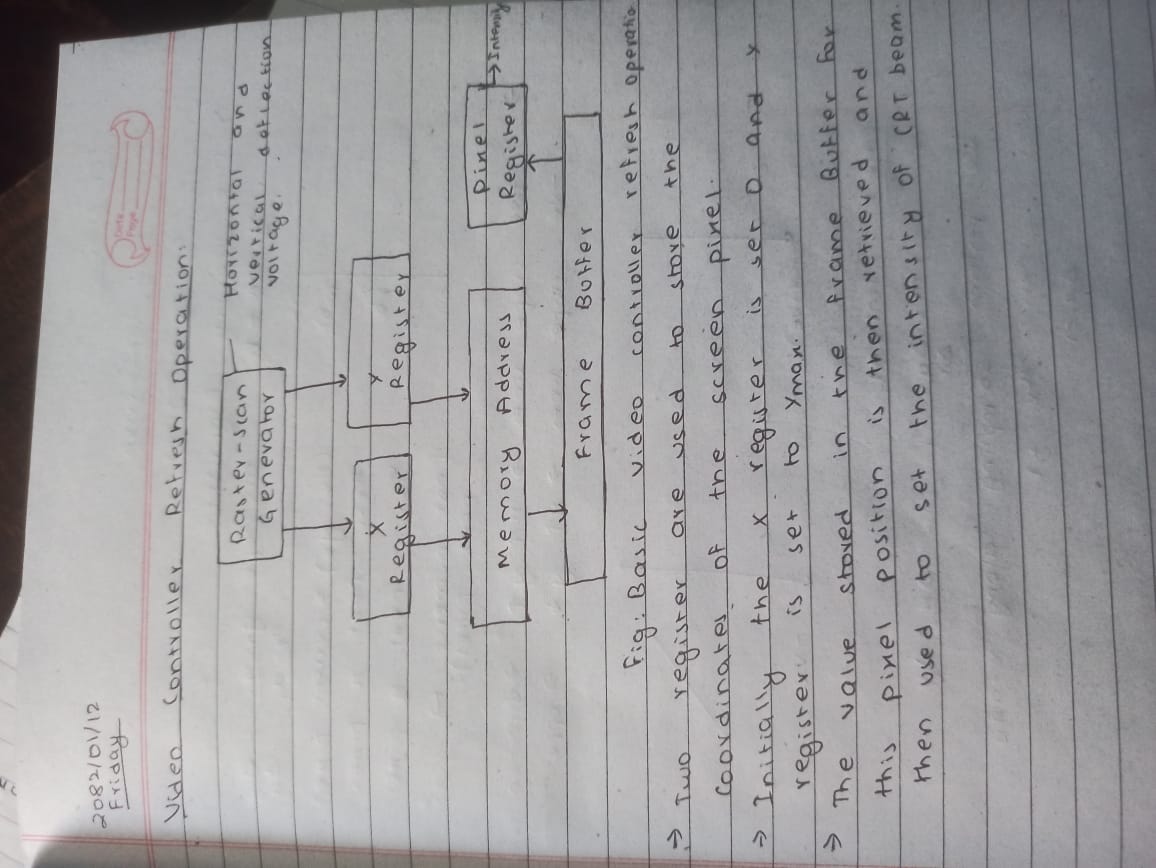 2082/01/12
Friday
Date
Page
Video Controller Refresh Operation:
Raster-scan
Generator
Horizontal and
vertical deflection
voltage.
X
Register
Y
Register
Memory Address
Pixel
Register
Intensity
Frame Buffer
Fig: Basic video controller refresh operatio
→ Two register are used to store the
coordinates of the screen pixel.
→ Initially the x register is set 0 and y
register is set to ymax.
→ The value stored in the frame Buffer for
this pixel position is then retrieved and
then used to set the intensity of CRT beam.